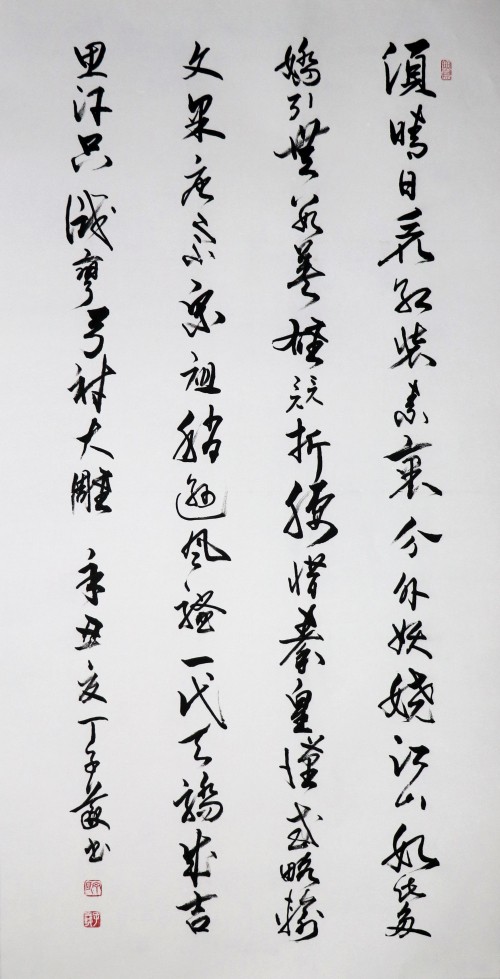 須晴日看红装素裹分外妖娆江山如此多
嬌引無数英雄競折腰惜秦皇漢武略输
文采唐宗宋祖稍逊风骚一代天骄成吉
思汗只識彎弓射大雕 辛丑夏丁子书